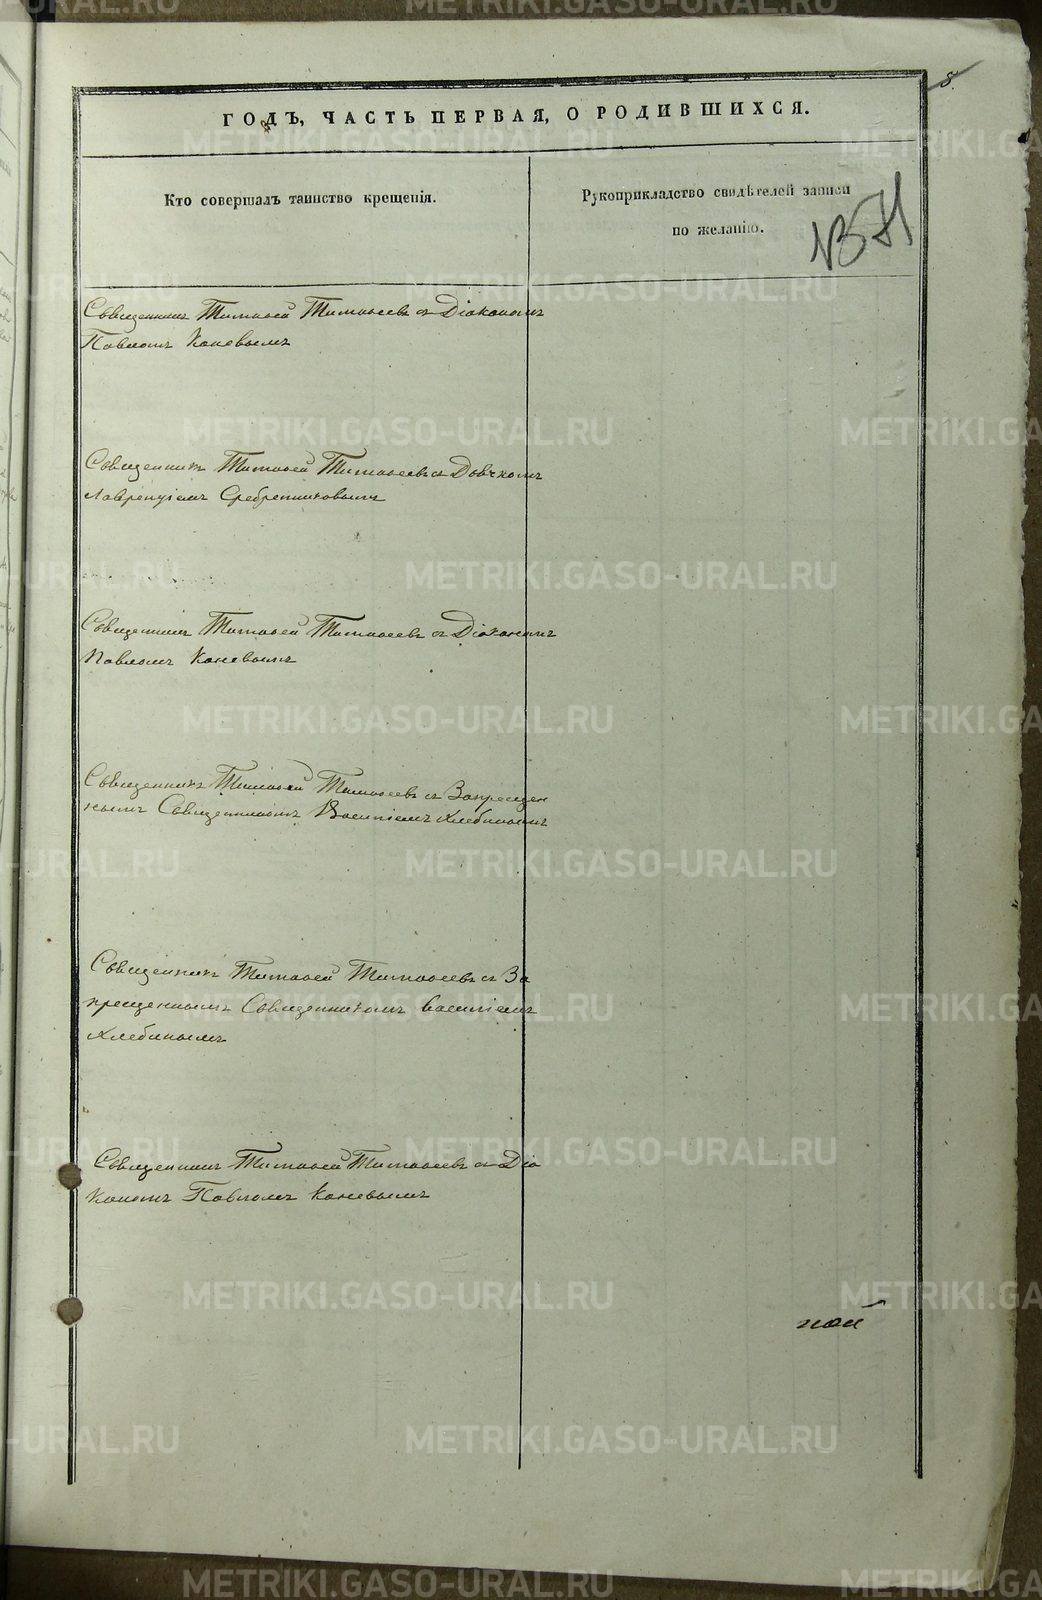 8.
ГОДЪ, ЧАСТЬ ПЕРВАЯ, О РОДИВШИХСЯ.
Кто совершалъ таинство крещенія.
Рукоприкладство свидѣтелей записи
по желанію.
Священникъ Тимоѳей Тимоѳеевъ съ Діакономъ
Павломъ Каневымъ
Священникъ Тимоѳей Тимоѳеевъ съ Дьячкомъ
Лаврентіемъ Сребренниковымъ
Священникъ Тимоѳей Тимоѳеевъ съ Діакономъ
Павломъ Каневымъ
Священникъ Тимоѳей Тимоѳеевъ съ Запрещен
нымъ Священникомъ Василіемъ Хлебинымъ
Священникъ Тимоѳей Тимоѳеевъ съ За
прещеннымъ Священникомъ Василіемъ
Хлебинымъ
Священникъ Тимоѳей Тимоѳеевъ съ Діа
кономъ Павломъ Каневымъ
ной
METRIKI.GASO-URAL.RU